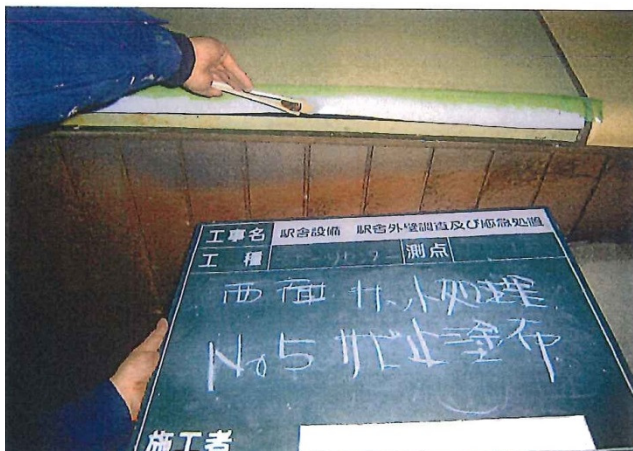 工事名 駅舎設備 駅舎外壁調査及び応急処置
工種 測点
西面 サッシ処理
No5 サビ止塗布
施工者